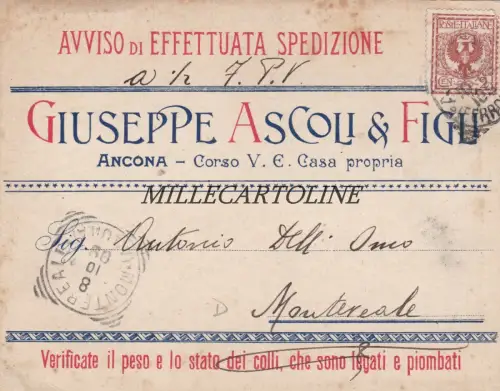 AVVISO DI EFFETTUATA SPEDIZIONE
POSTE ITALIANE
GIUSEPPE ASCOLI & FIGLI
ANCONA – Corso V. E. Casa propria
MILLECARTOLINE
Sig. Antonio Dell'Amo
MONTEREALE
D Montereale
Verificate il peso e lo stato dei colli, che sono legati e piombati